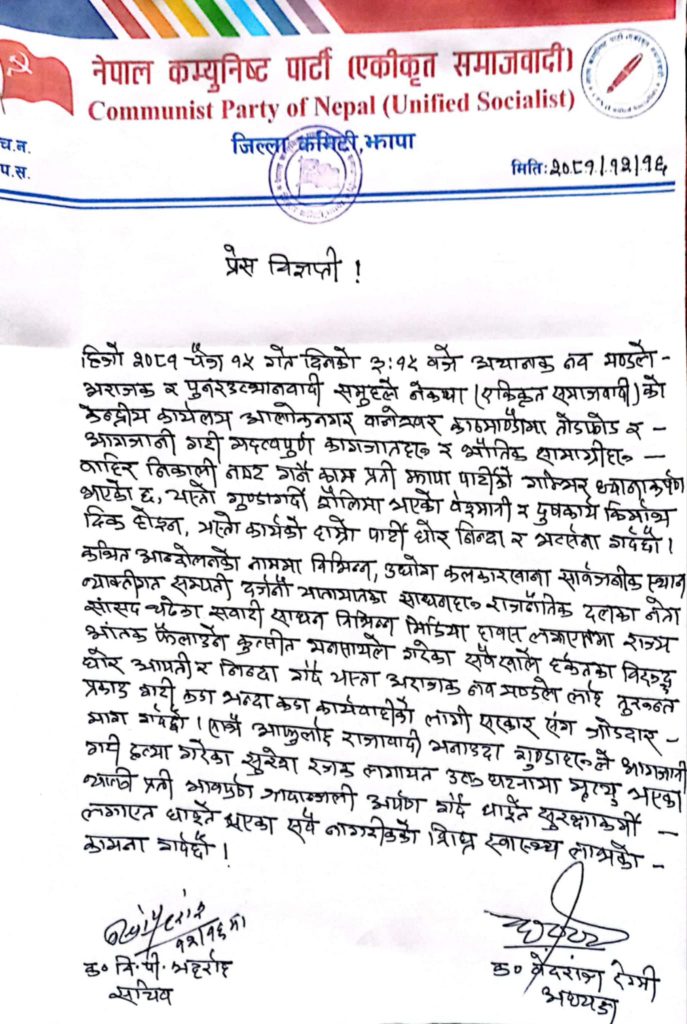 नेपाल कम्युनिष्ट पार्टी (एकीकृत समाजवादी)
Communist Party of Nepal (Unified Socialist)
जिल्ला कमिटी, झापा
च.न.
प.स.
मिति: २०८१/१२/१६
प्रेस विज्ञप्ती !
हिजो २०८१ चैत्र १५ गते दिनको ३:१५ बजे अचानक नव मण्डले -
अराजक र पुनरउत्थानवादी समुहले नेकपा (एकिकृत समाजवादी) को
केन्द्रीय कार्यलय आलोकनगर वानेश्वर काठमाण्डौमा तोडफोड र -
आगजानी गरी महत्वपुर्ण कागजातहरु र भौतिक सामाग्रीहरु -
बाहिर निकाली नष्ट गर्ने काम प्रती झापा पार्टीको गम्भिर ध्यानाकर्षण
भएको छ, यस्तो गुण्डागर्दी शैलिमा भएको बेइमानी र दुषकार्य किमार्थ
ठिक होइन, यस्तो कार्यको हाम्रो पार्टी घोर निन्दा र भर्त्सना गर्दछौं।
कथित आन्दोलनको नाममा विभिन्न, उद्योग कलकारखाना सार्वजनीक स्थान
व्याक्तीगत सम्पती दर्जनौं यातायातका साधनहरु राजनैतिक दलका नेता
सांसद चढेका सवारी साधन विभिन्न मिडिया हाउस लगाएतमा राज्य
आंतक फैलाउने कुत्सीत मनसायले गरेका सबैखाले हर्कतका विरुद्ध
घोर आपती र निन्दा गर्दै यस्ता अराजक नव मण्डले लाई तुरुन्त
पक्राउ गरी कडा भन्दा कडा कार्यवाहीको लागी सरकार संग जोडदार -
माग गर्दछौं। साथै आफुलाई राजावादी भनाउदा गुण्डाहरुले आगजानी
गरी हत्या गरेका सुरेश रजक लागायत उक्त घटनामा मृत्यु भएका
व्याक्ती प्रती भावपुर्ण श्रद्धाञ्जली अर्पण गर्दै घाईते सुरक्षाकर्मी -
लगाएत घाईते भएका सबै नागरीकको शिघ्र स्वास्थ्य लाभको -
कामना गर्दछौं।
१२/१६ मा
क० वि. पी. भट्टराई
सचिव
क० वेदराज रेग्मी
अध्यक्ष